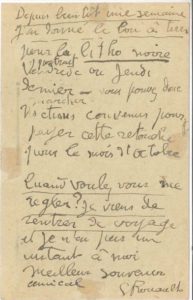 Depuis bientôt une semaine
j'ai donné le bon à tirer
pour la litho noire
Vendredi ou Jeudi
dernier - vous pouvez donc
marcher
convenus pour
payer cette retouche
pour le mois d'Octobre
Quand voulez vous me
régler? Je viens de
rentrer de voyage
et je n'ai pas un
instant à moi
Meilleur souvenir
amical
G Rouault